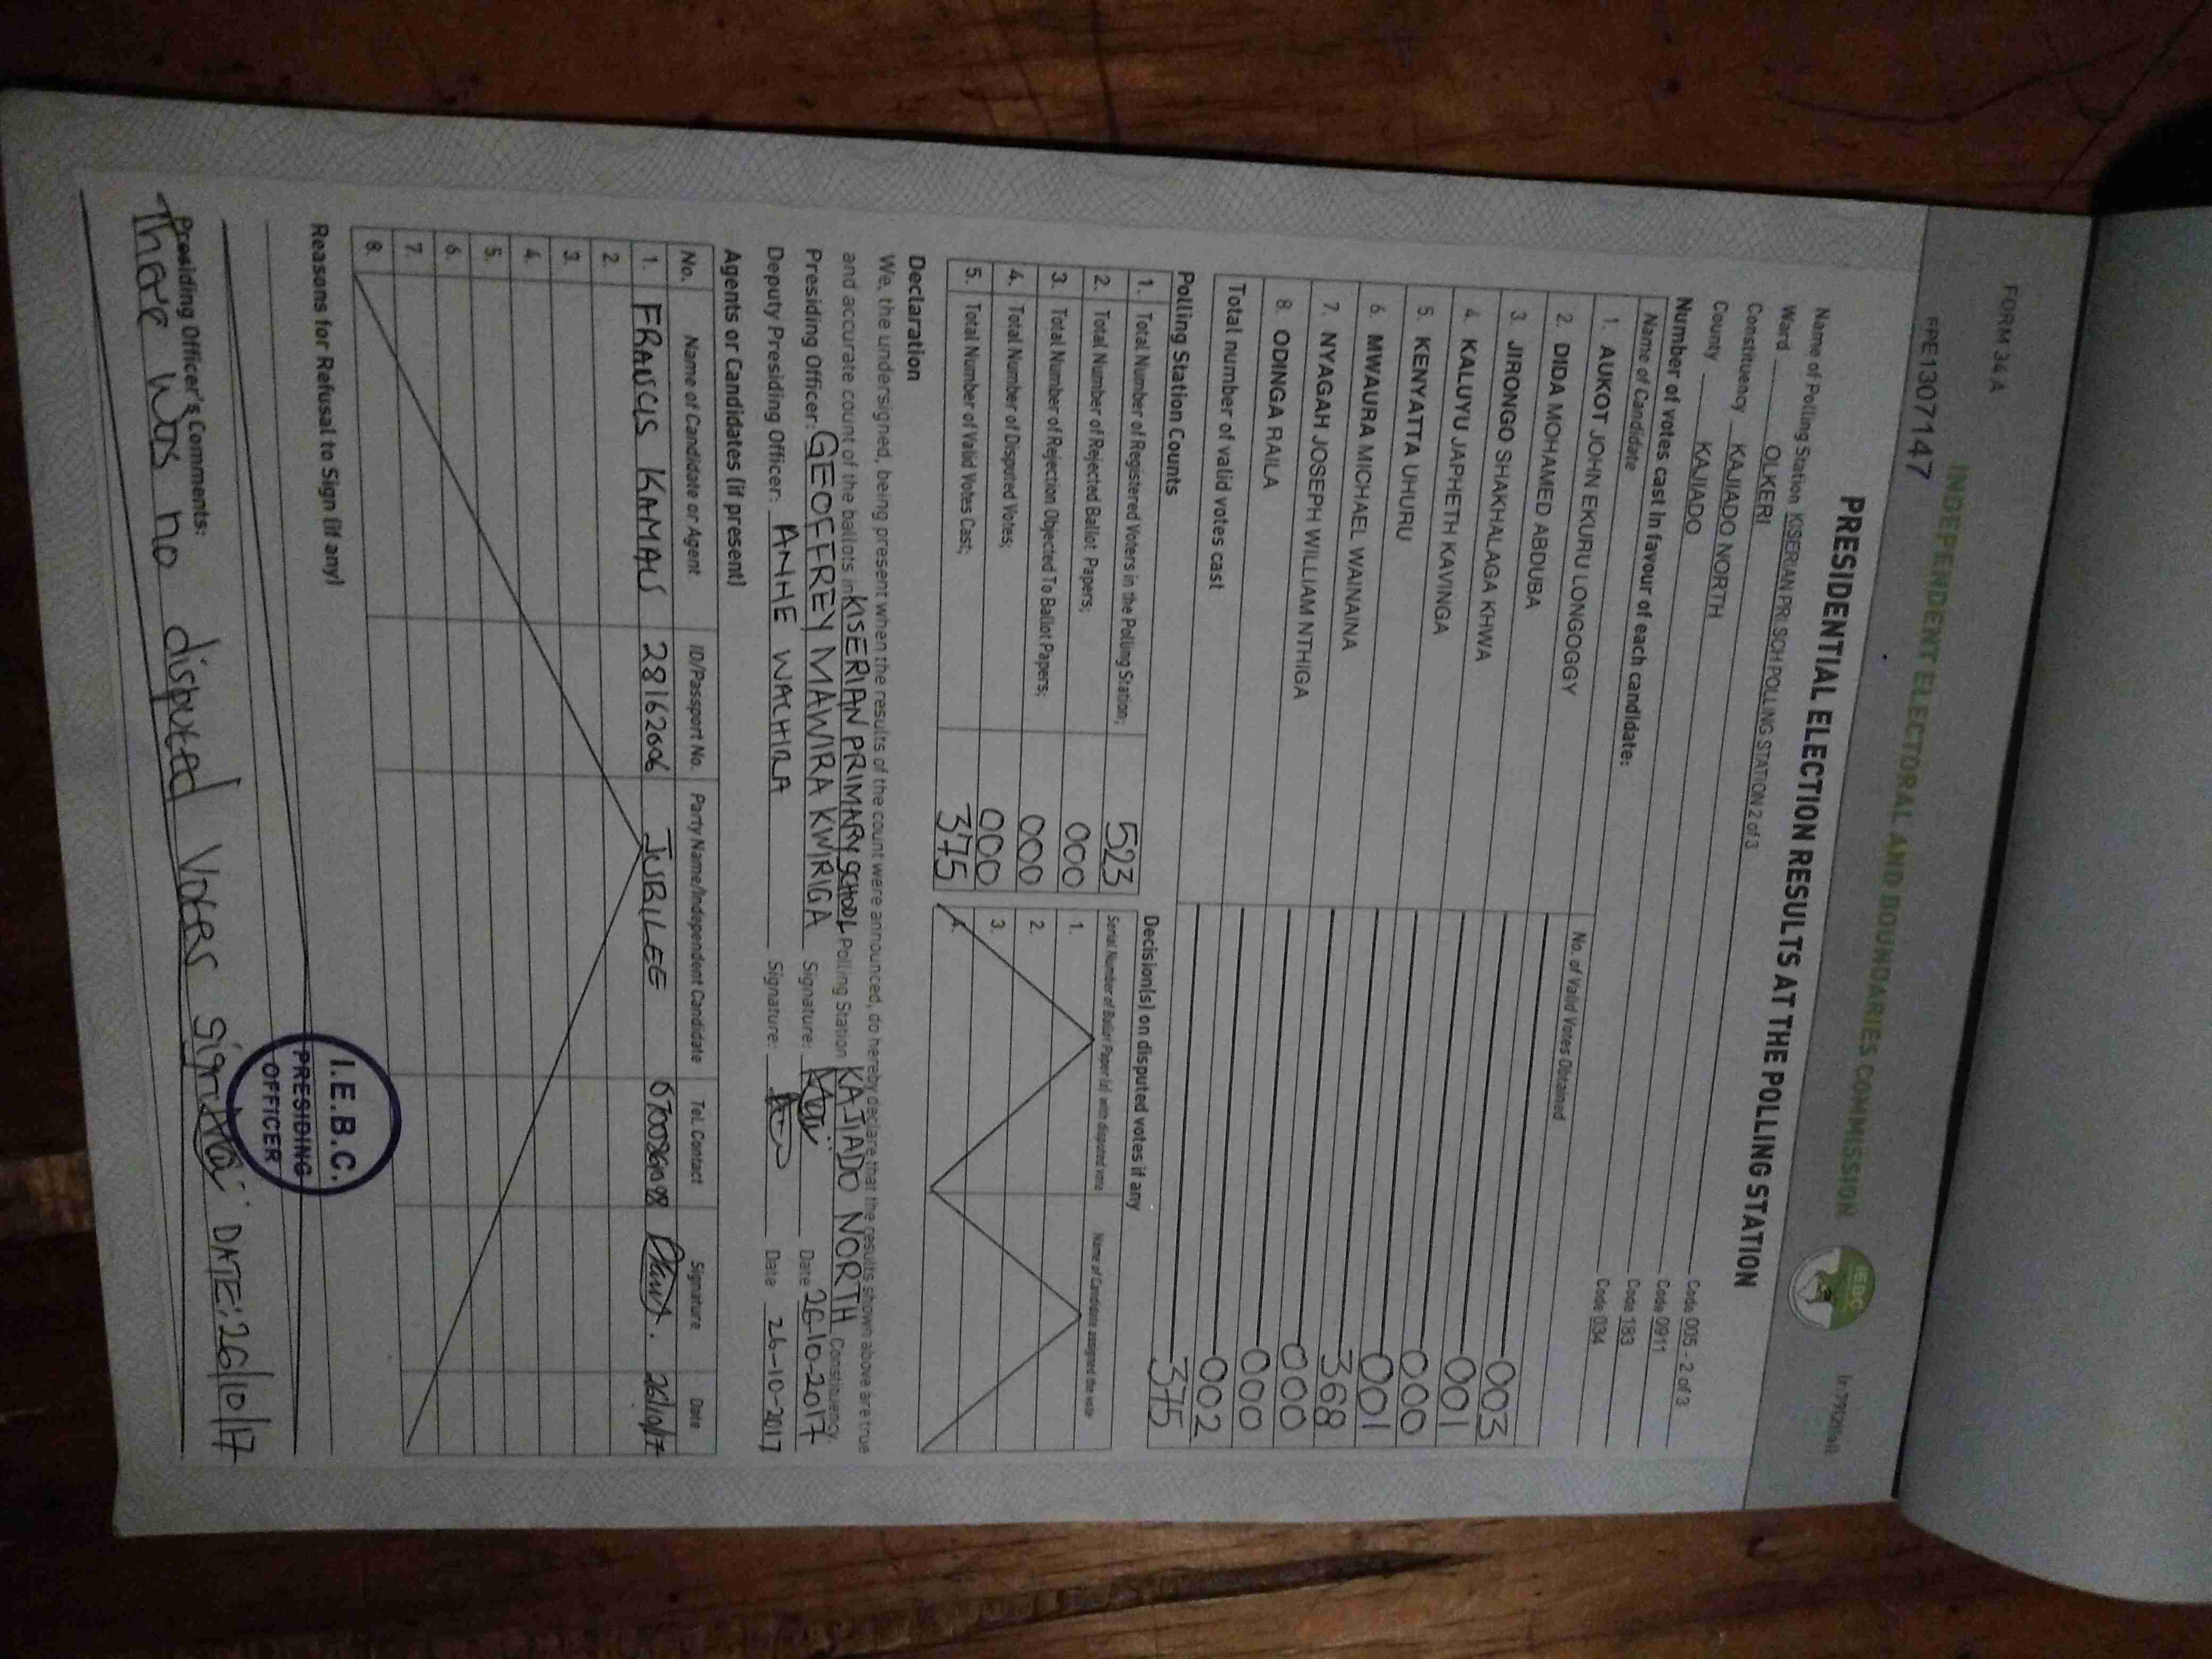 FORM 34 A
INDEPENDENT ELECTORAL AND BOUNDARIES COMMISSION
PE1307147
IEBC
PRESIDENTIAL ELECTION RESULTS AT THE POLLING STATION
Name of Polling Station KISERIAN PRI SCH POLLING STATION 2 of 3 Code 005 - 2 of 3
Ward OLKERI Code 0911
Constituency KAJIADO NORTH Code 183
County KAJIADO Code 034
Number of votes cast in favour of each candidate:
Name of Candidate No. of Valid Votes Obtained
1. AUKOT JOHN EKURU LONGOGGY 003
2. DIDA MOHAMED ABDUBA 001
3. JIRONGO SHAKHALAGA KHWA 000
4. KALUYU JAPHETH KAVINGA 001
5. KENYATTA UHURU 368
6. MWAURA MICHAEL WAINAINA 000
7. NYAGAH JOSEPH WILLIAM NTHIGA 000
8. ODINGA RAILA 002
Total number of valid votes cast 375
Polling Station Counts
1. Total Number of Registered Voters in the Polling Station; 523
2. Total Number of Rejected Ballot Papers; 000
3. Total Number of Rejection Objected To Ballot Papers; 000
4. Total Number of Disputed Votes; 000
5. Total Number of Valid Votes Cast; 375
Decision(s) on disputed votes if any
Serial Number of Ballot Paper (s) with disputed vote Name of Candidate assigned the vote
1.
2.
3.
4.
Declaration
We, the undersigned, being present when the results of the count were announced, do hereby declare that the results shown above are true
and accurate count of the ballots in KISERIAN PRIMARY SCHOOL Polling Station KAJIADO NORTH Constituency.
Presiding Officer: GEOFFREY MAWIRA KWIRIGA Signature: Date 26-10-2017
Deputy Presiding Officer: ANNE WACHIRA Signature: Date 26-10-2017
Agents or Candidates (if present)
No. Name of Candidate or Agent ID/Passport No. Party Name/Independent Candidate Tel. Contact Signature Date
1. FRANCIS KAMAU 28162006 JUBILEE 26/10/17
2.
3.
4.
5.
6.
7.
8.
Reasons for Refusal to Sign (if any)
I.E.B.C.
PRESIDING
OFFICER
Presiding Officer's Comments:
There was no disputed Voters DATE: 26/10/17